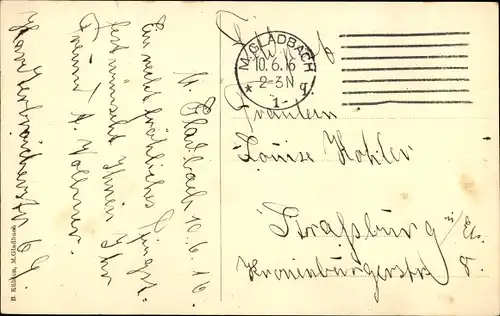 M. Gladbach 10.6.16.
Ein recht fröhliches Pfingst-
fest wünscht Ihnen Ihr
Freund A. Vollmer
M. GLADBACH
10.6.16
2-3 N
* 1 - g
Fräulein
Louise Kohler
Straßburg i/ Els.
Kronenburgerstr 8.
B. Kühlen, M.Gladbach